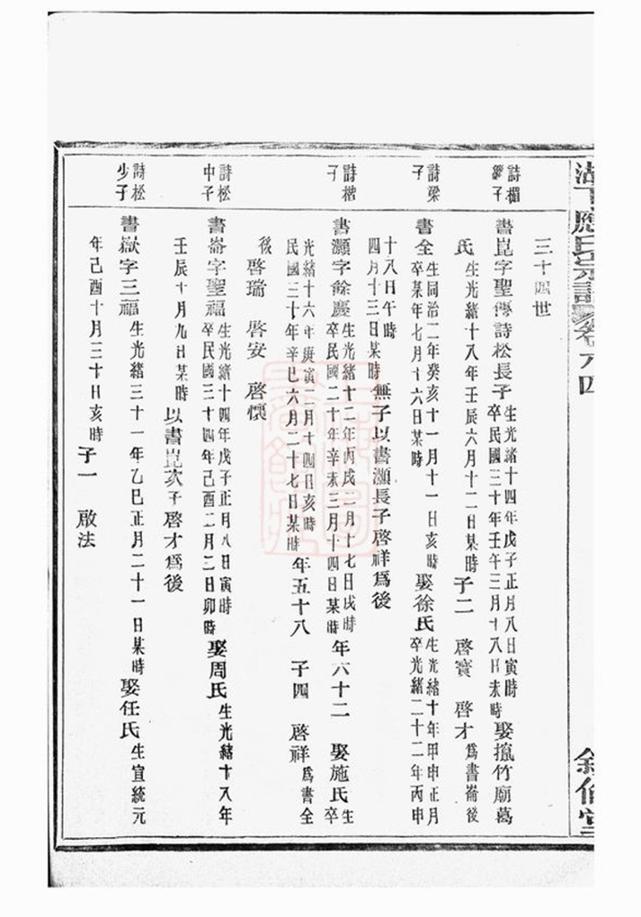 三十四世
詩楣
繼子
書崑字聖傳詩松長子
生光緒十四年戊子正月八日寅時
卒民國三十年壬午三月十八日未時
娶搵竹廟葛
氏
生光緒十八年壬辰六月十二日某時
子二 啓寶 啓才
為書崙後
詩梁
子
書全
生同治二年癸亥十一月十一日亥時
卒某年七月十六日某時
娶徐氏
生光緒十年甲申正月
卒光緒二十二年丙申
十八日午時
四月十三日某時
無子以書灝長子啓祥為後
詩楷
子
書灝字餘慶
生光緒十二年丙戌二月十七日戌時
卒民國二十年辛未三月十四日某時
年六十二
娶施氏
生
卒
光緒十六年庚寅二月十四日亥時
民國三十年辛巳六月二十七日某時
年五十八
子四 啓祥
為書全
後
啓瑞 啓安 啓懷
詩松
中子
書崙字聖福
生光緒十四年戊子正月八日寅時
卒民國三十四年己酉二月三日卯時
娶周氏
生光緒十八年
壬辰十月九日某時
以書崑次子啓才為後
詩松
少子
書嶽字三福
生光緒三十一年乙巳正月二十一日某時
娶任氏
生宣統元
年己酉十月三十日亥時
子一 啟法